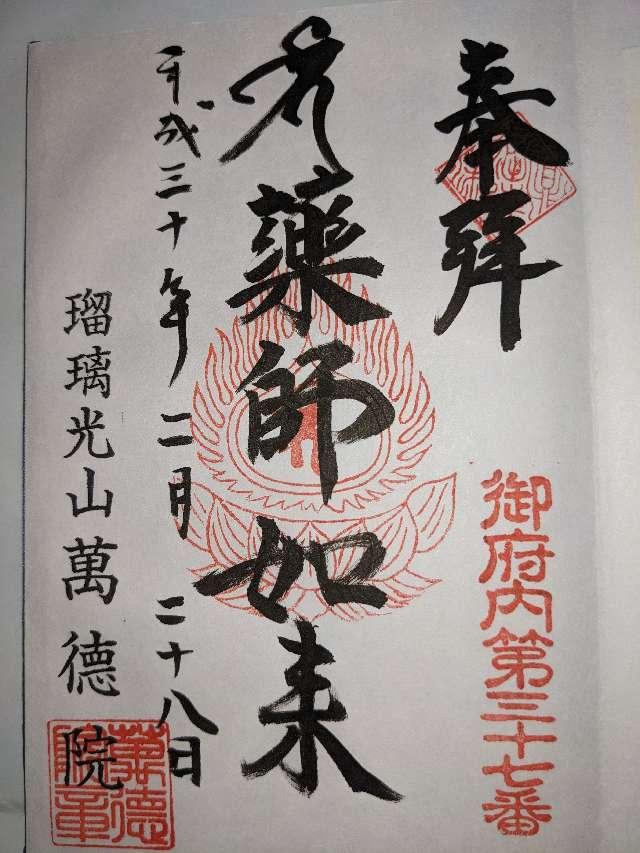 奉拜
御府内第三十七番
薬師如来
平成三十年二月二十八日
瑠璃光山萬德院